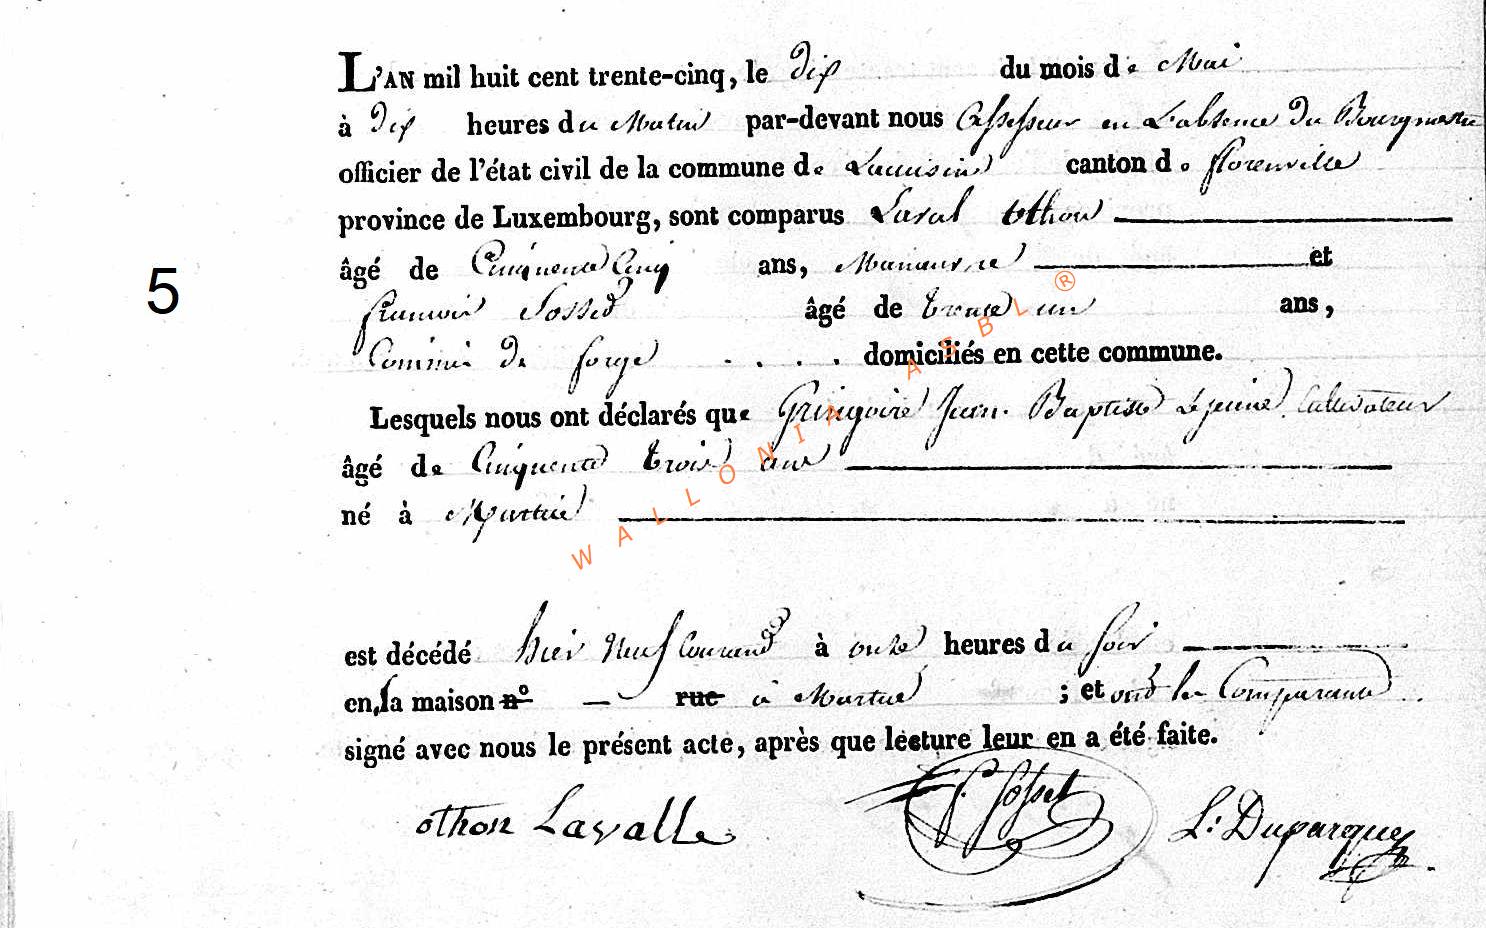 L'AN mil huit cent trente-cinq, le dix du mois de Mai
à dix heures du Matin par-devant nous Assesseur en L'absence du Bourgmestre
officier de l'état civil de la commune de Lacuisine canton de florenville
province de Luxembourg, sont comparus Laval Othon
5
âgé de Cinquente Cinq ans, Manœuvre et
francois Sosset âgé de trente un ans,
Commis de forge . . . . domiciliés en cette commune.
Lesquels nous ont déclarés que Gringoire Jean Baptiste Lejeune Cultivateur
âgé de Cinquente trois ans
né à Martué
est décédé hier neuf Courant à onze heures du soir
en la maison n° — rue à Martué ; et ont les Comparants
signé avec nous le présent acte, après que lecture leur en a été faite.
othon Lavalle F. Sosset L: Duparque
WALLONIA ASBL ®